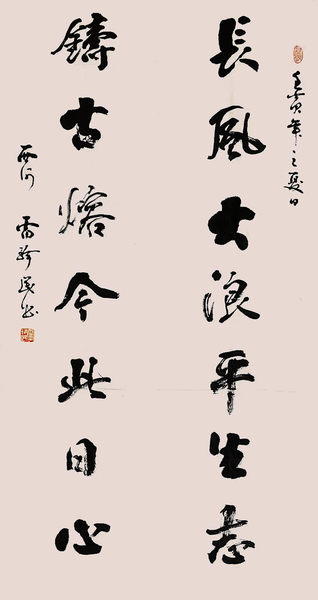 壬寅年之夏日
長風大浪平生志
鑄古熔今此日心
西河 雷珍民书